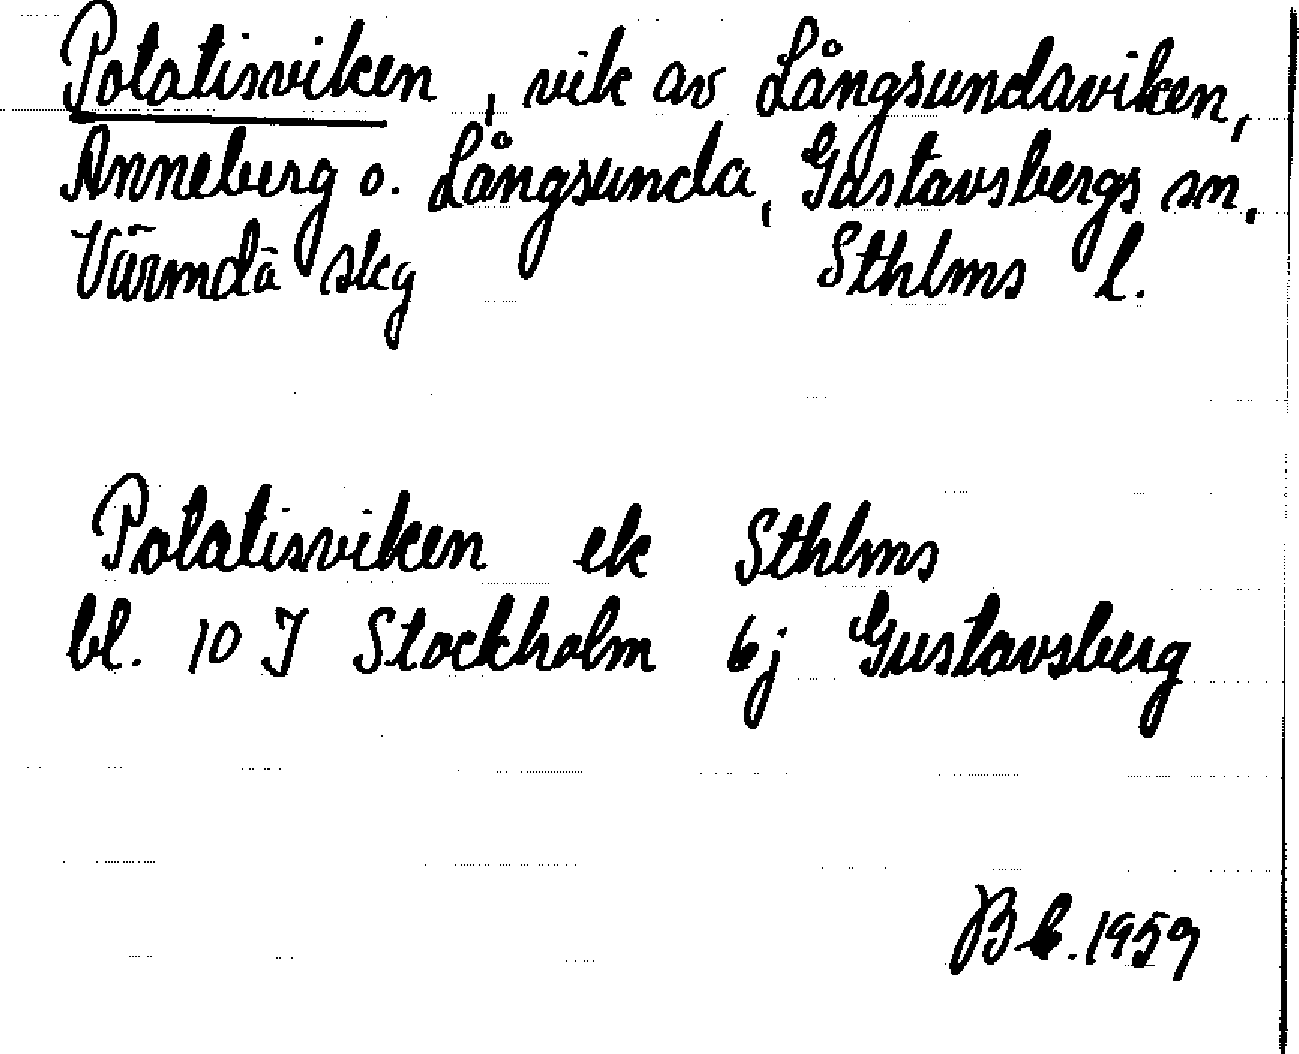 Potatisviken, vik av Långsundaviken,
Anneberg o. Långsunda, Gustavsbergs sn,
Värmdö skg Sthlms l.
Potatisviken ek Sthlms
bl. 10 J Stockholm 6j Gustavsberg
1959